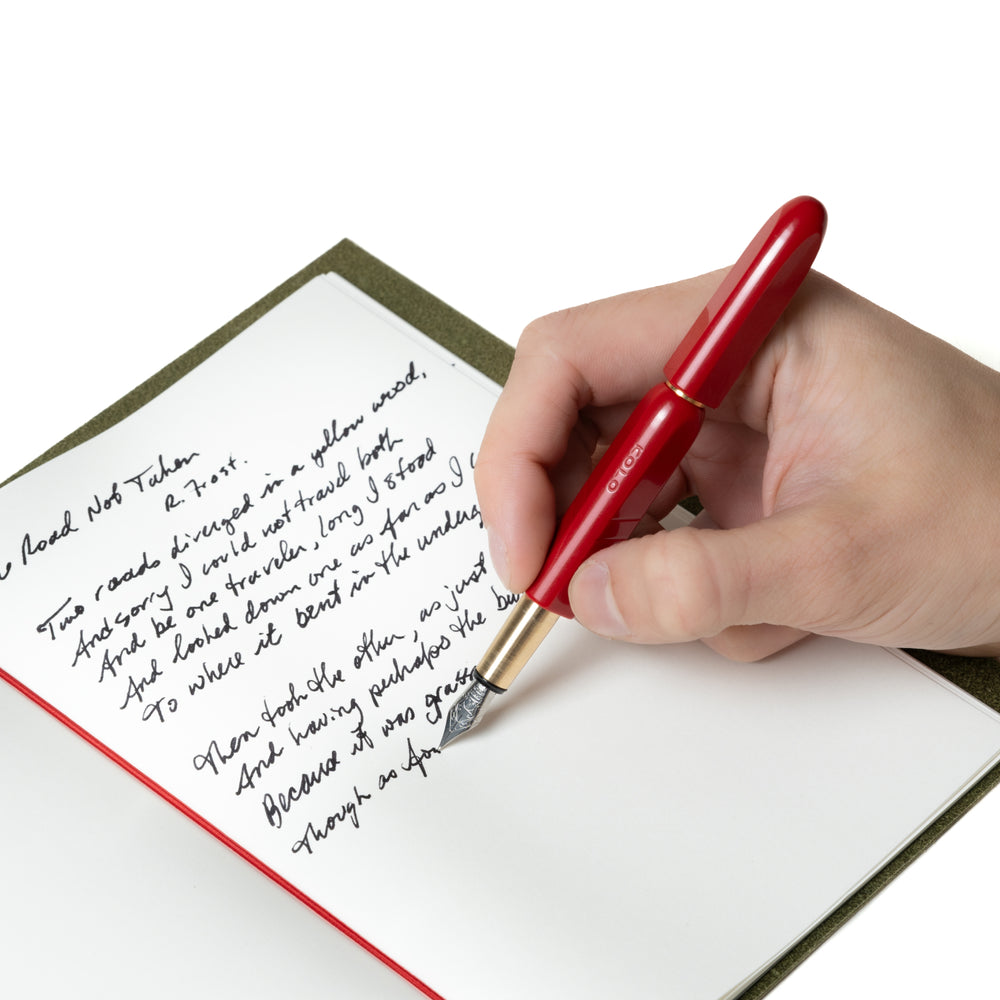 Road Not Taken
R. Frost.
Two roads diverged in a yellow wood,
And sorry I could not travel both
And be one traveler, long I stood
And looked down one as far as I
To where it bent in the underg
Then took the other, as just
And having perhaps the be
Because it was grass
Though as for
KOLO